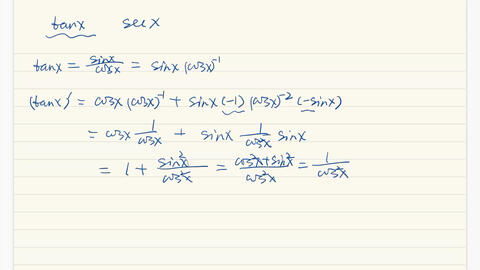 tanx secx
tanx = sinx/cosx = sinx (cosx)⁻¹
(tanx)' = cosx (cosx)⁻¹ + sinx (-1) (cosx)⁻² (-sinx)
= cosx 1/cosx + sinx 1/cos²x sinx
= 1 + sin²x/cos²x = cos²x+sin²x/cos²x = 1/cos²x